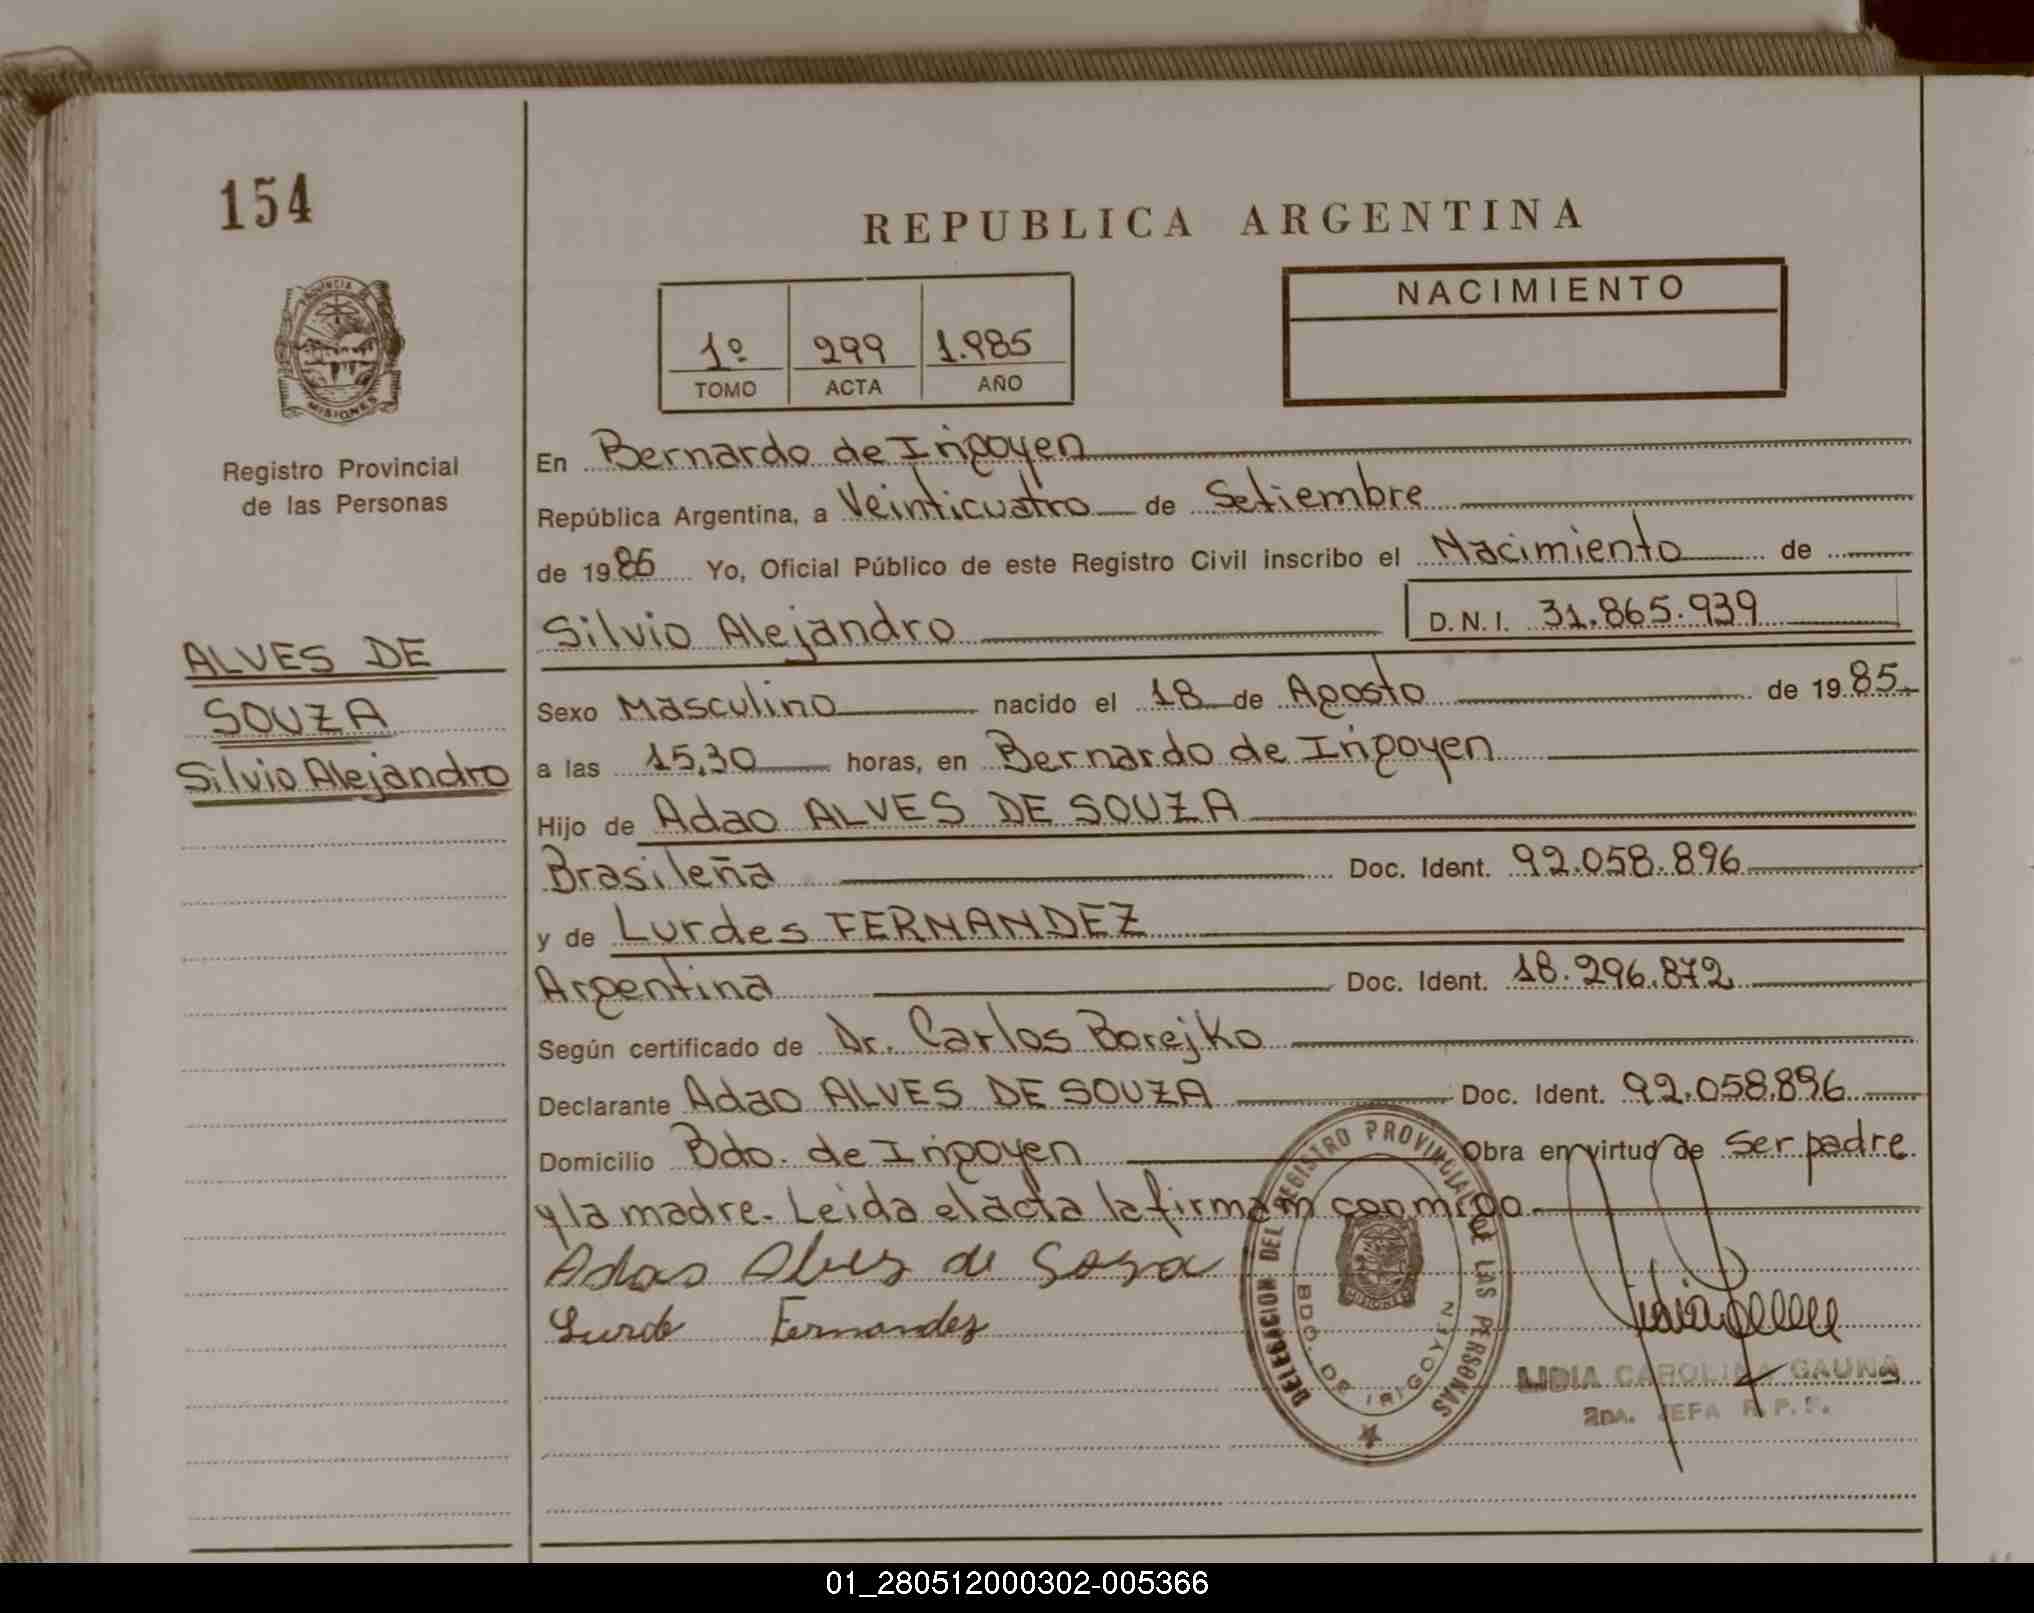 154
REPUBLICA ARGENTINA
PROVINCIA DE
MISIONES
NACIMIENTO
1º 299 1.985
TOMO ACTA AÑO
Registro Provincial
de las Personas
En Bernardo de Irigoyen
República Argentina, a Veinticuatro de Setiembre
de 1985 Yo, Oficial Público de este Registro Civil inscribo el Nacimiento de
Silvio Alejandro D.N.I. 31.865.939
ALVES DE
SOUZA
Silvio Alejandro
Sexo Masculino nacido el 18 de Agosto de 1985.
a las 15,30 horas, en Bernardo de Irigoyen
Hijo de Adao ALVES DE SOUZA
Brasileña Doc. Ident. 92.058.896
y de Lurdes FERNANDEZ
Argentina Doc. Ident. 18.296.872
Según certificado de Dr. Carlos Borejko
Declarante Adao ALVES DE SOUZA Doc. Ident. 92.058.896
Domicilio Bdo. de Irigoyen Obra en virtud de ser padre
y la madre. Leida el acta la firmam conmigo
Adao Alves de Sosa
Lurde Fernandez
DELEGACION DEL REGISTRO PROVINCIAL DE LAS PERSONAS
BDO. DE IRIGOYEN
MISIONES
LIDIA CAROLINA GAUNA
2DA. JEFA R.P.P.
01_280512000302-005366